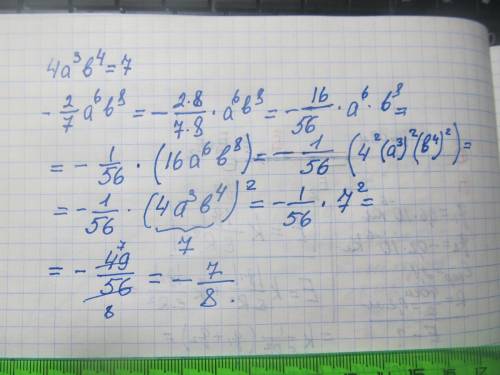 4a³b⁴=7
-2/7 a⁶b⁸ = -2·8/7·8 · a⁶b⁸ = -16/56 · a⁶ · b⁸ =
= -1/56 · (16a⁶b⁸) = -1/56 (4²(a³)²(b⁴)²) =
= -1/56 · (4a³b⁴)² = -1/56 · 7² =
7
= -49/56 = -7/8.
7
8